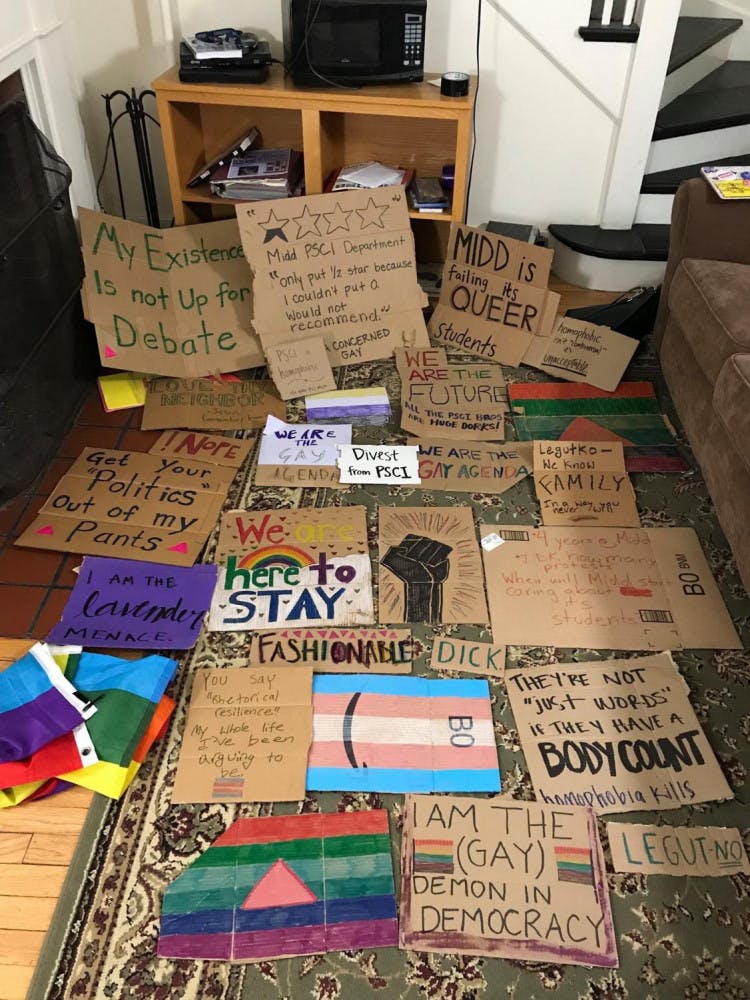 My Existence
Is not Up for
Debate
"
"
Midd PSCI Department
"only put 1/2 star because
I couldn't put 0.
Would not
recommend."
A CONCERNED
GAY
PSCI is
homophobic
MIDD is
failing its
QUEER
students
homophobic
isn't "controversial"
it's
unacceptable
LOVE THY
NEIGHBOR
- Jesus
WE
ARE THE
FUTURE
ALL THE PSCI BROS
ARE HUGE DORKS!
! NOPE
WE ARE
THE
GAY
AGENDA
Divest
from PSCI
WE ARE THE
GAY AGENDA
Legutko -
We Know
FAMILY
In a way you
never will
Get Your
"Politics"
Out of my
Pants
We are
here to
STAY
4 years @ Midd
How many
protests
When will Midd start
caring about
its
students
BO
I AM THE
lavender
MENACE.
FASHIONABLE
DICK
You say
"rhetorical
resilience"
My whole life
I've been
arguing to
be.
BO
THEY'RE NOT
"just WORDS"
IF THEY HAVE A
BODY COUNT
homophobia kills
I AM THE
(GAY)
DEMON IN
DEMOCRACY
LEGUT-NO